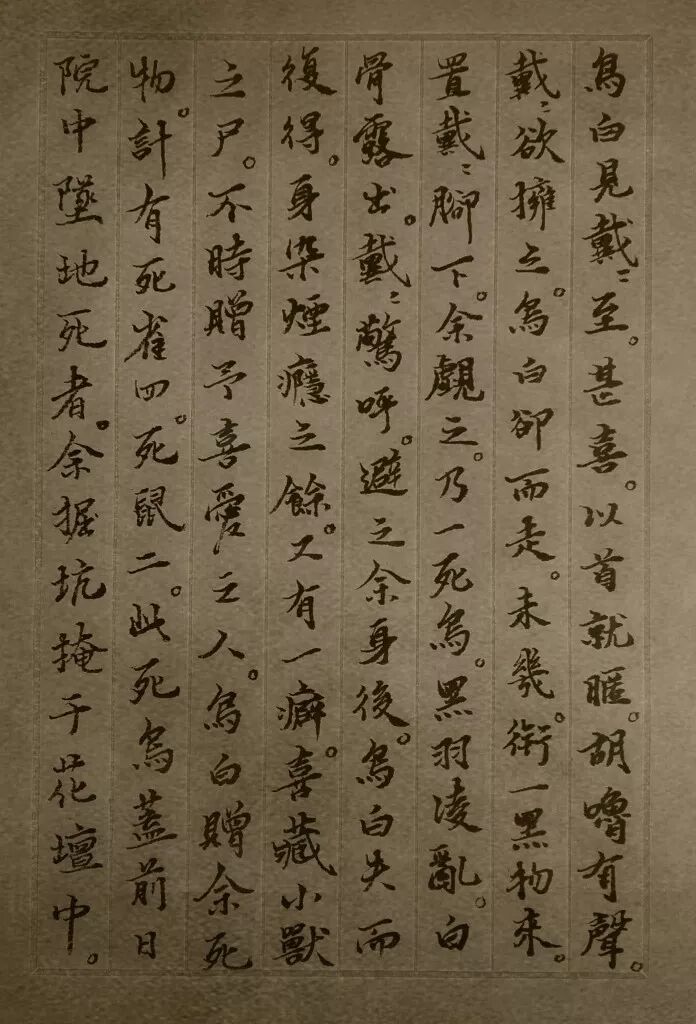 烏白見戴〻至。甚喜。以首就暱。胡嚕有聲。
戴〻欲擁之。烏白卻而走。未幾。銜一黑物來。
置戴〻腳下。余覷之。乃一死烏。黑羽凌亂。白
骨露出。戴〻驚呼。避之余身後。烏白失而
復得。身染煙癮之餘。又有一癖。喜藏小獸
之尸。不時贈予喜愛之人。烏白贈余死
物。計有死雀四。死鼠二。此死烏蓋前日
院中墜地死者。余掘坑掩于花壇中。